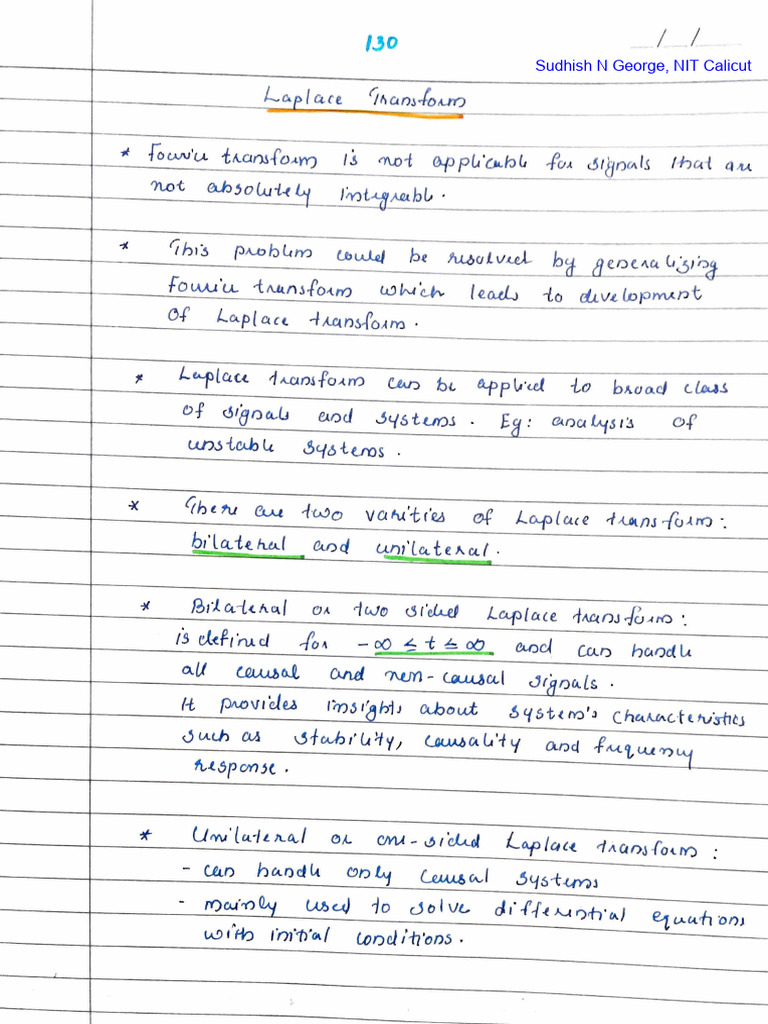 130
Sudhish N George, NIT Calicut
Laplace Transform
* Fourier transform is not applicable for signals that are
not absolutely integrable.
* This problem could be resolved by generalizing
Fourier transform which leads to development
of Laplace transform.
* Laplace transform can be applied to broad class
of signals and systems. Eg: analysis of
unstable systems.
* There are two varities of Laplace transform:
bilateral and unilateral.
* Bilateral or two sided Laplace transform:
is defined for -∞ ≤ t ≤ ∞ and can handle
all causal and non-causal signals.
It provides insights about system's characteristics
such as stability, causality and frequency
response.
* Unilateral or one-sided Laplace transform:
- can handle only causal systems
- mainly used to solve differential equations
with initial conditions.